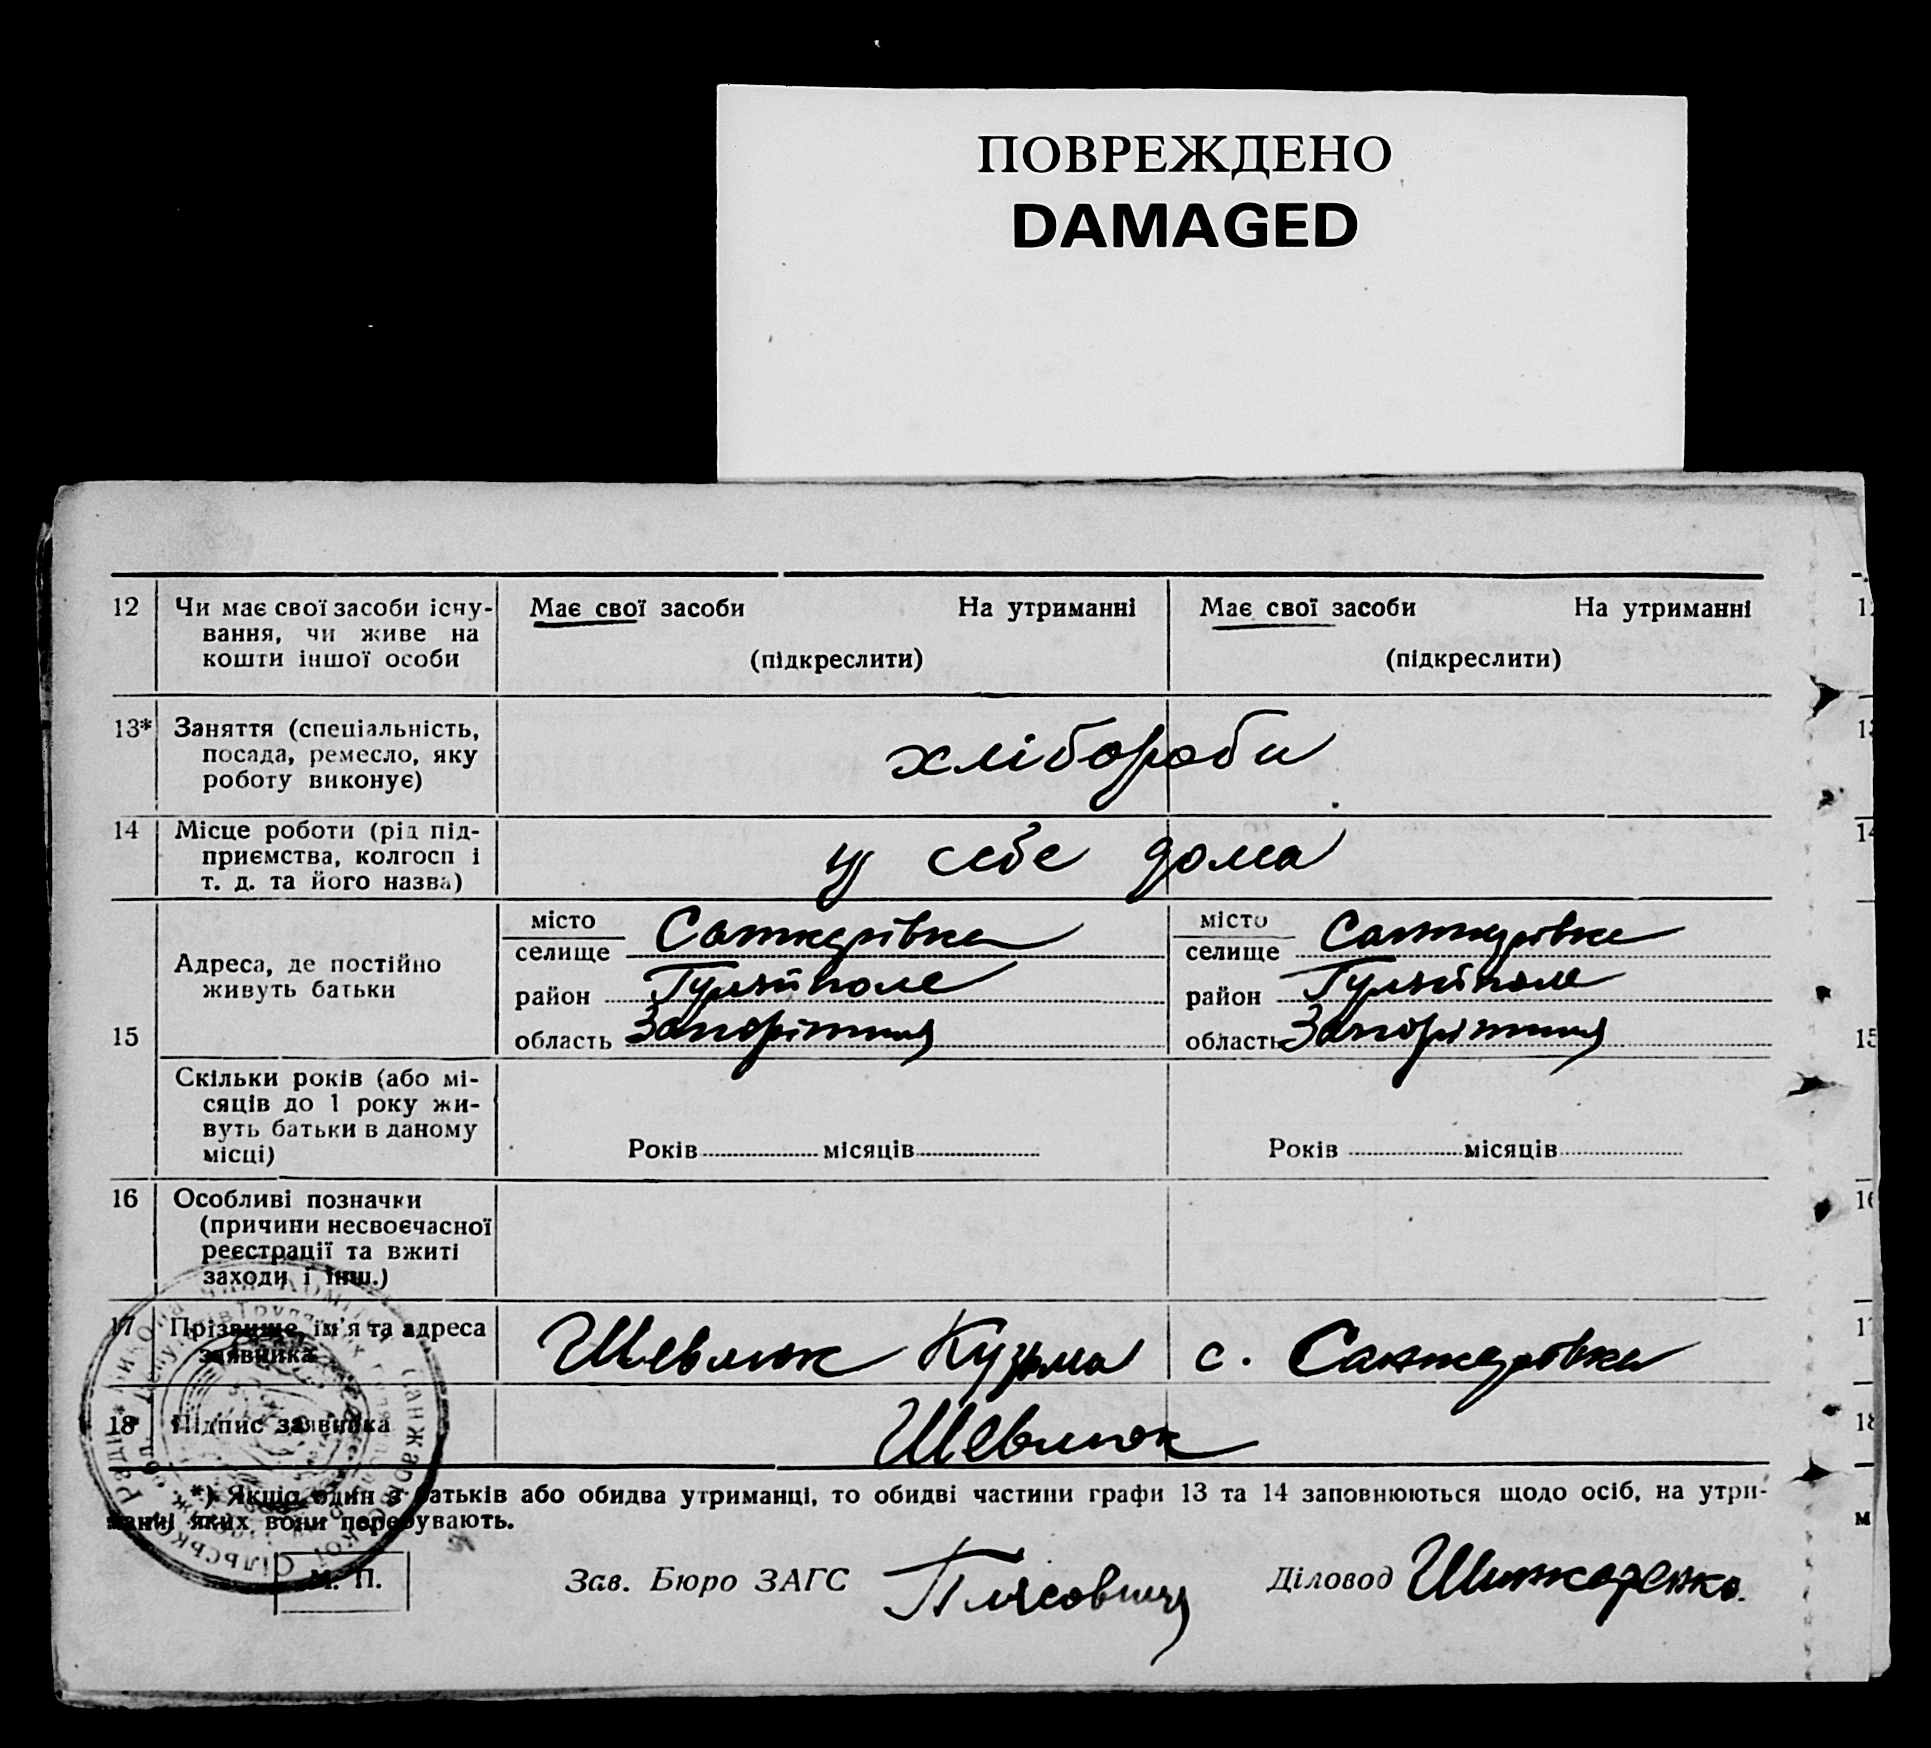 ПОВРЕЖДЕНО
DAMAGED
12 Чи має свої засоби існу-
вання, чи живе на
кошти іншої особи
Має свої засоби На утриманні
(підкреслити)
Має свої засоби На утриманні
(підкреслити)
13* Заняття (спеціальність,
посада, ремесло, яку
роботу виконує)
хлібороби
14 Місце роботи (рід під-
приємства, колгосп і
т. д. та його назва)
у себе дома
15 Адреса, де постійно
живуть батьки
місто
селище Санжарівка
район Гуляйполе
область Запоріжжя
місто
селище Санжарівка
район Гуляйполе
область Запоріжжя
Скільки років (або мі-
сяців до 1 року жи-
вуть батьки в даному
місці)
Років місяців
Років місяців
16 Особливі позначки
(причини несвоєчасної
реєстрації та вжиті
заходи і інш.)
17 Прізвище, ім'я та адреса
заявника
Шевлюк Кузьма с. Санжаровка
18 Підпис заявника
Шевлюк
*) Якщо один з батьків або обидва утриманці, то обидві частини графи 13 та 14 заповнюються щодо осіб, на утри-
манні яких вони перебувають.
М. П.
Зав. Бюро ЗАГС
Діловод Шинкаренко.
12
13
14
15
16
17
18
м